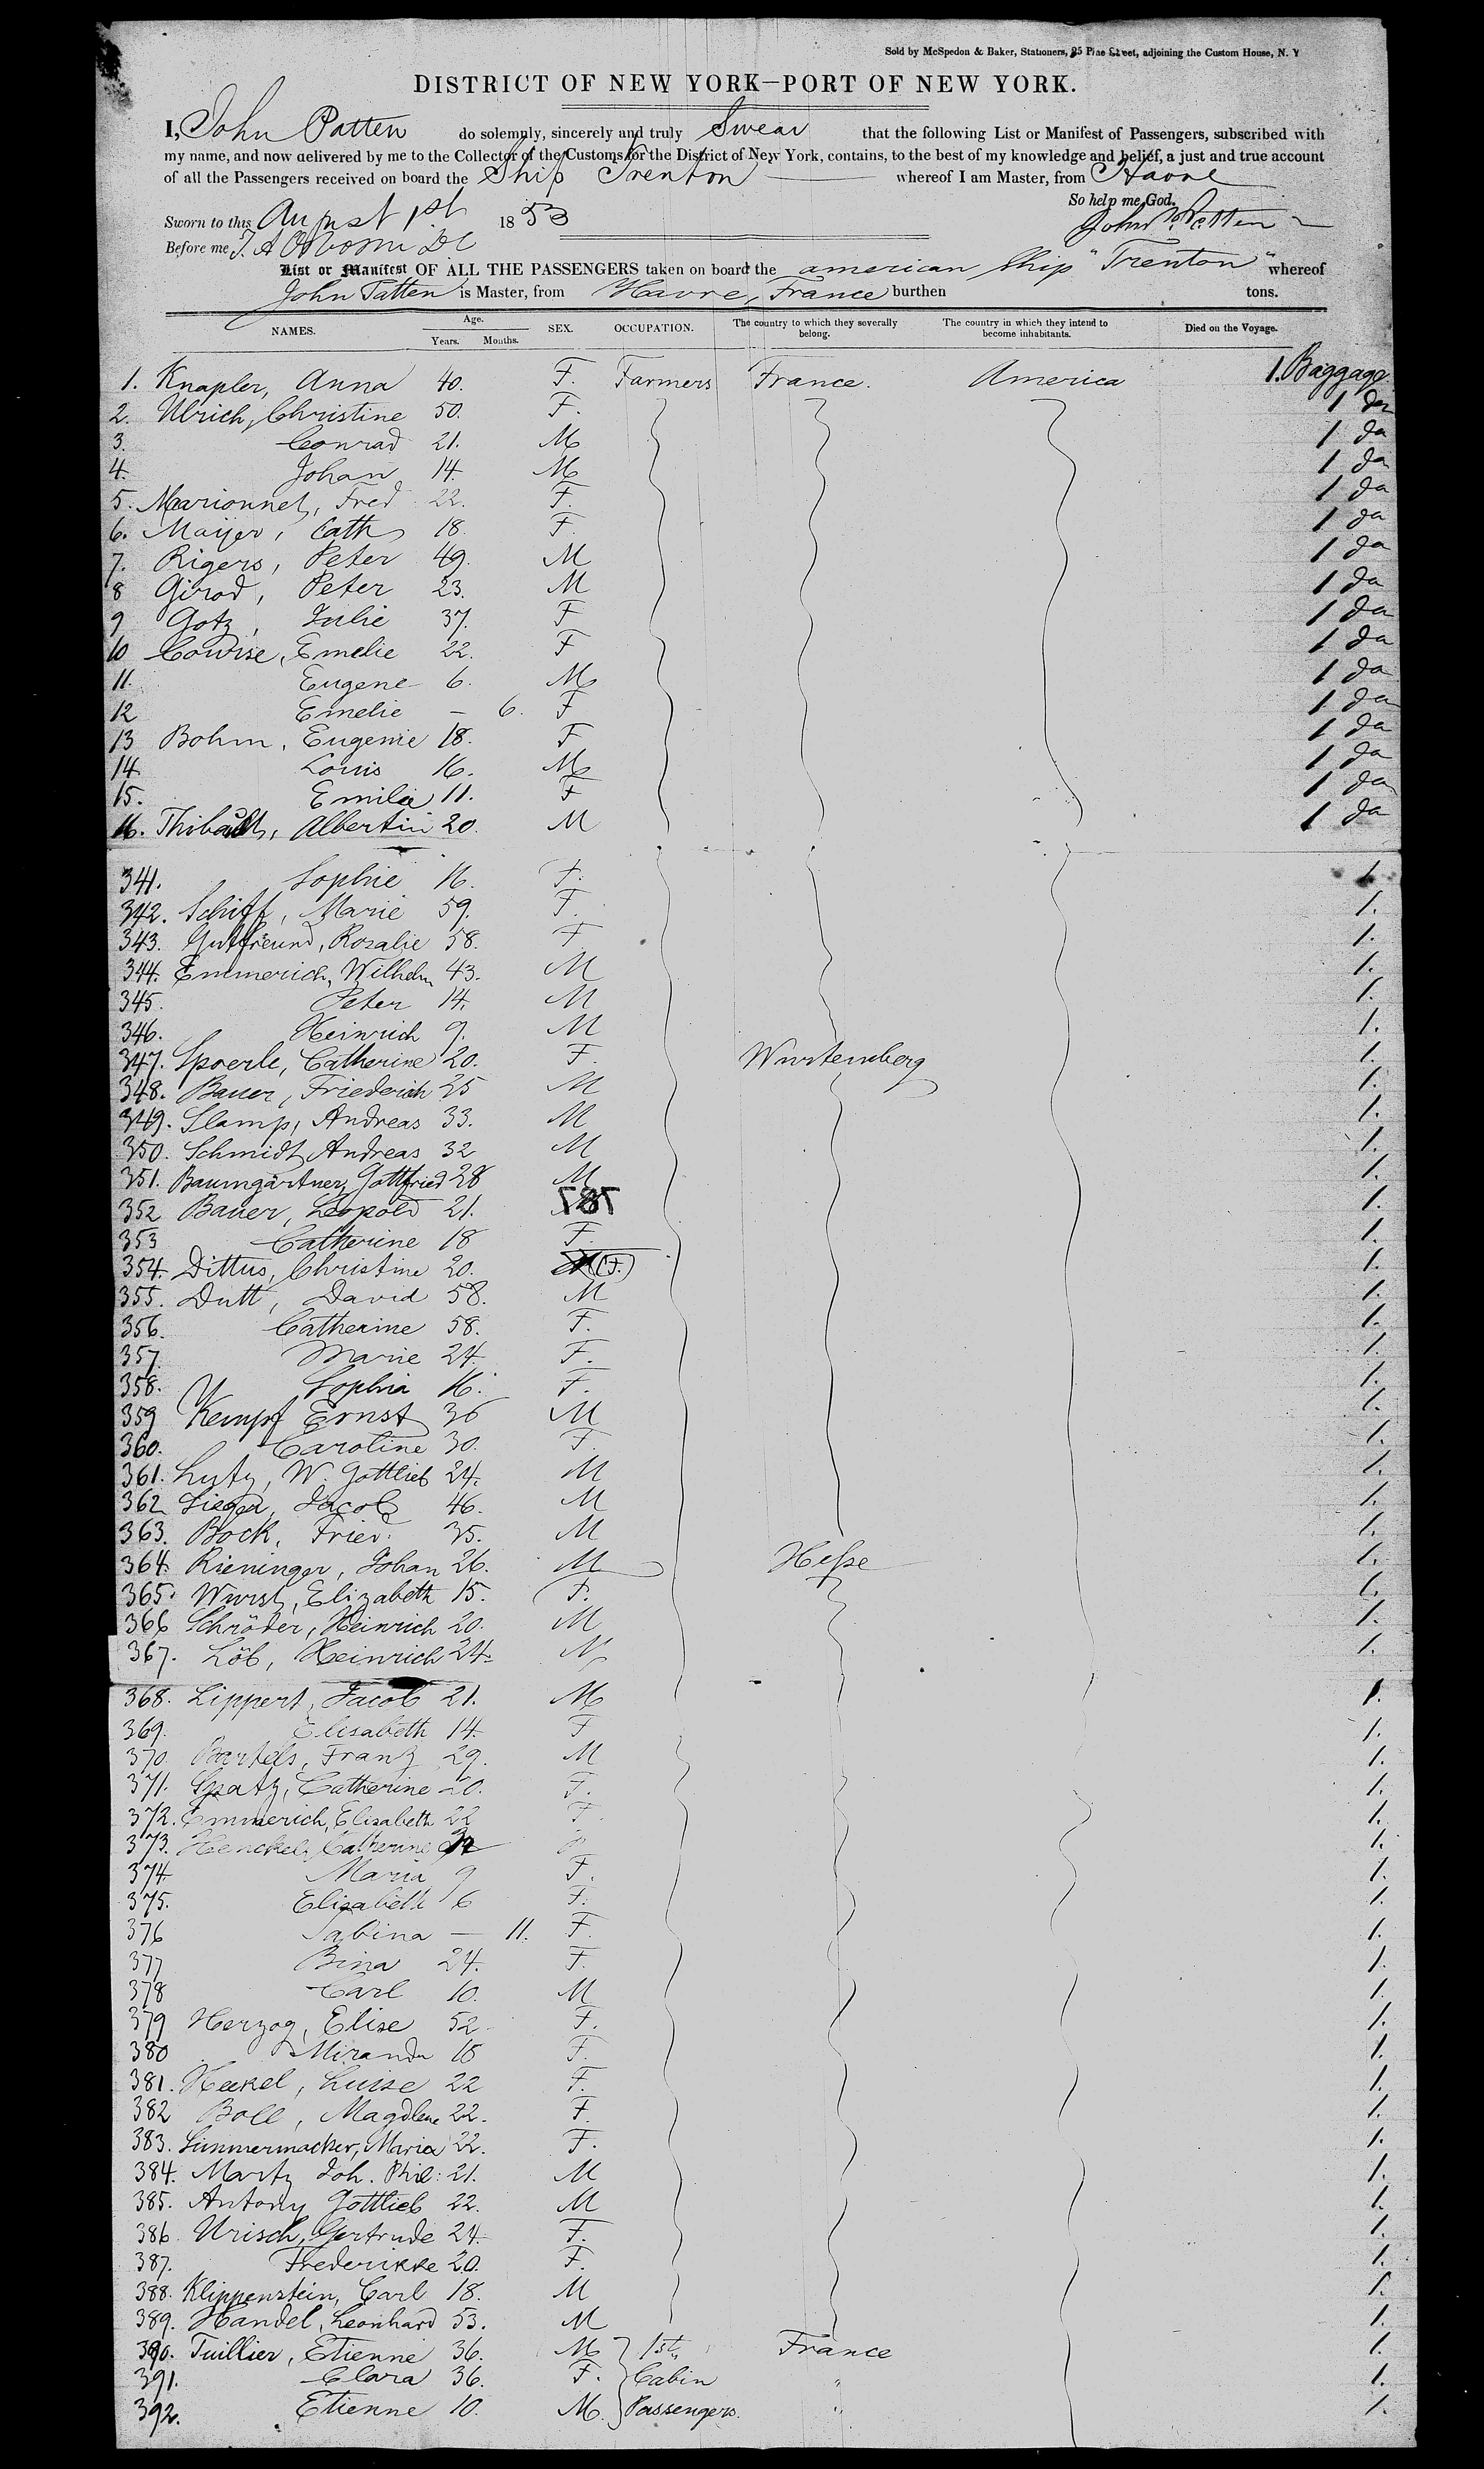 Sold by McSpedon & Baker, Stationers, 25 Pine Street, adjoining the Custom House, N. Y
DISTRICT OF NEW YORK—PORT OF NEW YORK.
I, John Patten do solemnly, sincerely and truly Swear that the following List or Manifest of Passengers, subscribed with
my name, and now delivered by me to the Collector of the Customs for the District of New York, contains, to the best of my knowledge and belief, a just and true account
of all the Passengers received on board the Ship Trenton whereof I am Master, from Havre
So help me God.
Sworn to this August 1st 1853 John Patten
Before me
List or Manifest OF ALL THE PASSENGERS taken on board the american Ship "Trenton" whereof
John Patten is Master, from Havre, France burthen tons.
NAMES. Age. Years. Months. SEX. OCCUPATION. The country to which they severally belong. The country in which they intend to become inhabitants. Died on the Voyage.
1. Knapler, Anna 40. F. Farmers France. America 1. Baggage
2. Ulrich, Christine 50. F. 1 do
3. Conrad 21. M 1 do
4. Johan 14. M 1 do
5. Marionnet, Fred 22. F. 1 do
6. Maijer, Cath 18. F 1 do
7. Rigers, Peter 49. M 1 do
8 Girod, Peter 23. M 1 do
9 Gotz, Julie 37. F 1 do
10 Courise, Emelie 22. F 1 do
11. Eugene 6. M 1 do
12 Emelie — 6. F 1 do
13 Bohm, Eugenie 18. F 1 do
14 Louis 16. M 1 do
15. Emilie 11. F 1 do
16. Thibault, Albertin 20. M 1 do
341. Sophie 16. F. 1.
342. Schiff, Marie 59. F. 1.
343. Gutfreund, Rosalie 58. F 1.
344. Emmerich, Wilhelm 43. M 1.
345. Peter 14. M 1.
346. Heinrich 9. M 1.
347. Spoerle, Catherine 20. F. Wurtemberg 1.
348. Bauer, Friederich 25 M 1.
349. Slamp, Andreas 33. M 1.
350. Schmidt, Andreas 32 M 1.
351. Baumgärtner, Gottfried 28 M 1.
352 Bauer, Leopold 21. 787 1.
353 Catherine 18 F. 1.
354. Dittus, Christine 20. M (F.) 1.
355. Dutt, David 58. M 1.
356. Catherine 58. F. 1.
357 Marie 24. F. 1.
358. Sophia 16. F. 1.
359 Kempf Ernst 36 M 1.
360. Caroline 30. F. 1.
361. Lutz, W. Gottlieb 24. M 1.
362 Sieger, Jacob 46. M 1.
363. Bock, Fried. 35. M 1.
364. Rieninger, Johan 26. M Hesse 1.
365. Wurst, Elizabeth 15. F. 1.
366 Schröder, Heinrich 20. M 1.
367. Löb, Heinrich 24. M 1.
368. Lippert, Jacob 21. M 1.
369. Elisabeth 14. F 1.
370 Bartels, Franz 29. M 1.
371. Spatz, Catherine 20. F. 1.
372. Emmerich, Elisabeth 22 F. 1.
373. Henckel, Catherine 1.
374. Maria 9 F. 1.
375. Elizabeth 6 F. 1.
376 Sabina — 11. F. 1.
377 Bina 24. F. 1.
378 Carl 10. M 1.
379 Herzog, Elise 52 F. 1.
380 Miranda 15 F. 1.
381. Heckel, Luise 22 F. 1.
382 Boll, Magdlene 22. F. 1.
383. Simmermacker, Maria 22. F. 1.
384. Martz Joh. Phil: 21. M 1.
385. Antony Gottlieb 22. M 1.
386. Urisch, Gertrude 24. F. 1.
387. Frederikke 20. F. 1.
388. Klippenstein, Carl 18. M 1.
389. Handel, Leonhard 53. M 1.
390. Tuillier, Etienne 36. M 1st France 1.
391. Clara 36. F. Cabin " 1.
392. Etienne 10. M. Passengers. " 1.